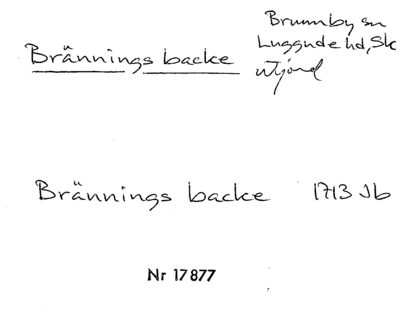 Brunnby sn
Luggude hd, Sk
Brännings backe
utjord
Brännings backe 1713 Jb
Nr 17877